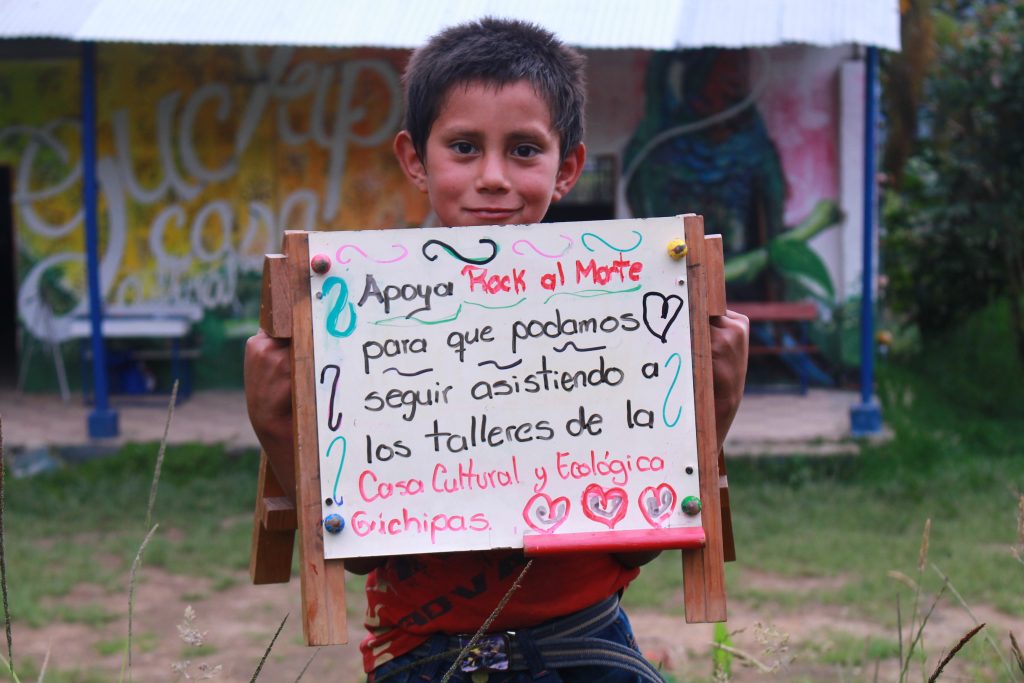 Guchipas
casa
Cultural
Apoya Rock al Marte
para que podamos
seguir asistiendo a
los talleres de la
Casa Cultural y Ecológica
Guichipas.